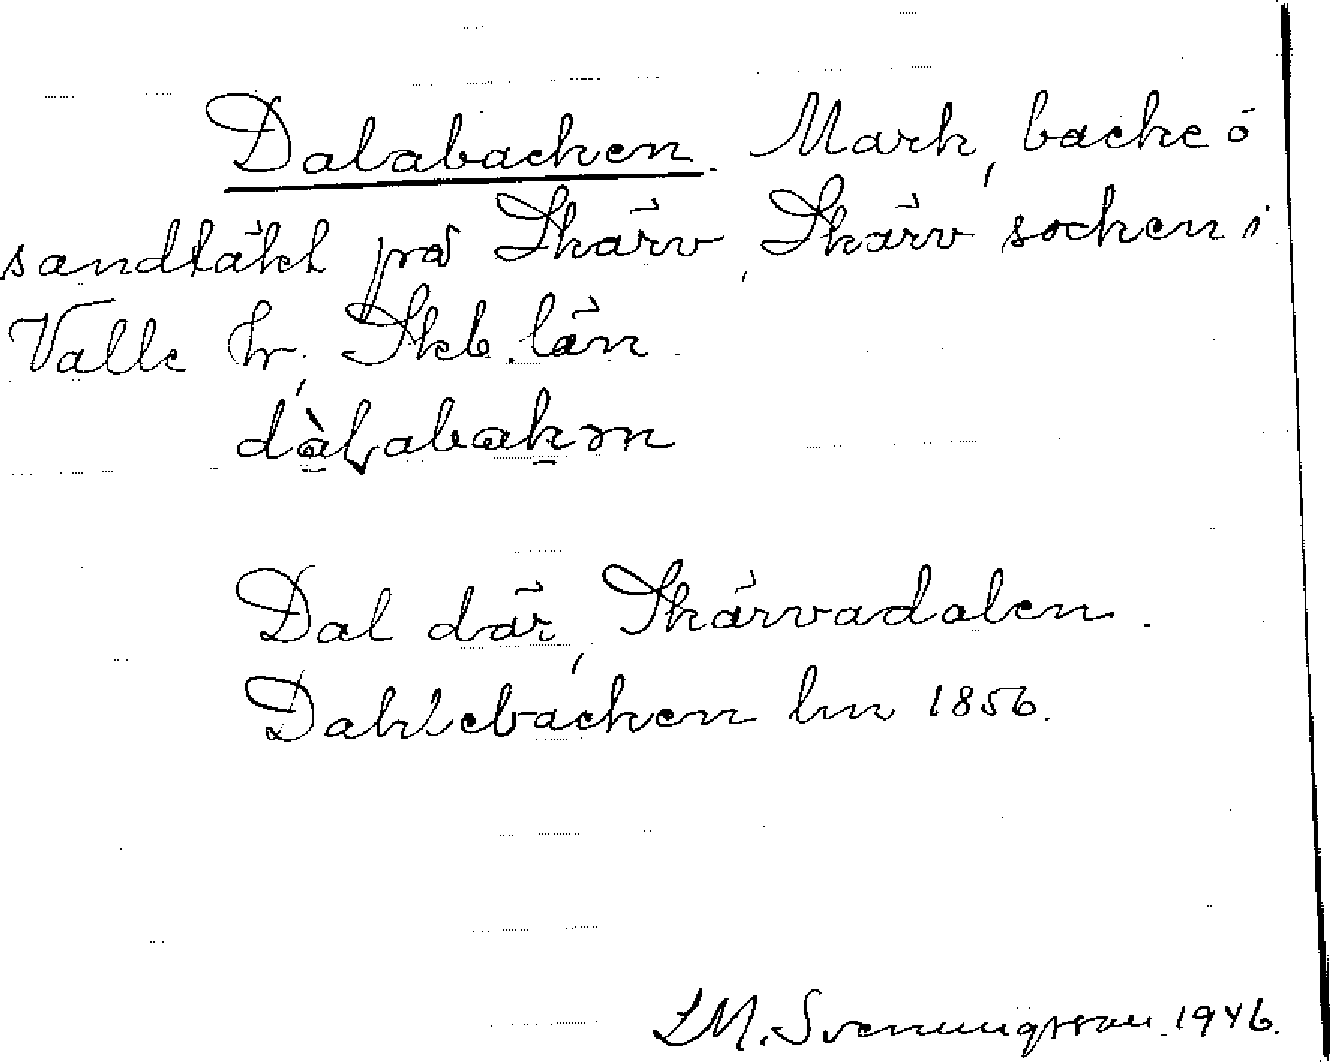 Dalabacken. Mark, backe o
sandtäkt på Skärv, Skärv socken i
Valle hr, Skb. län
dàl̥abakən
Dal där, Skärvadalen.
Dahlebacken lm 1856.
LM. Svenungsson. 1946.